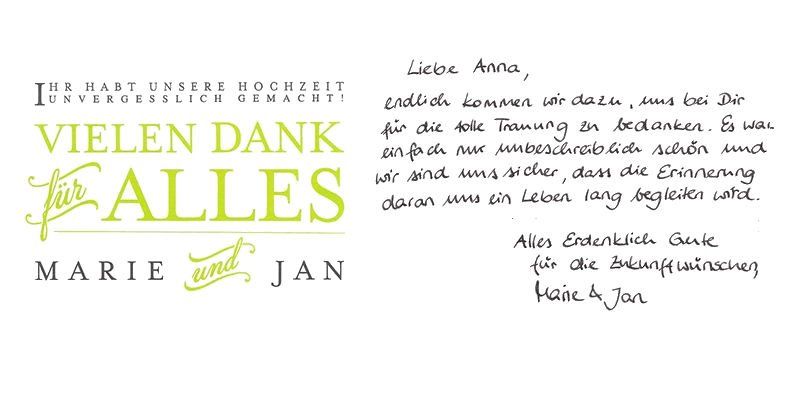 IHR HABT UNSERE HOCHZEIT
UNVERGESSLICH GEMACHT!
VIELEN DANK
für ALLES
MARIE und JAN
Liebe Anna,
endlich kommen wir dazu, uns bei Dir
für die tolle Trauung zu bedanken. Es war
einfach nur unbeschreiblich schön und
wir sind uns sicher, dass die Erinnerung
daran uns ein Leben lang begleiten wird.
Alles Erdenklich Gute
für die Zukunft wünschen,
Marie & Jan